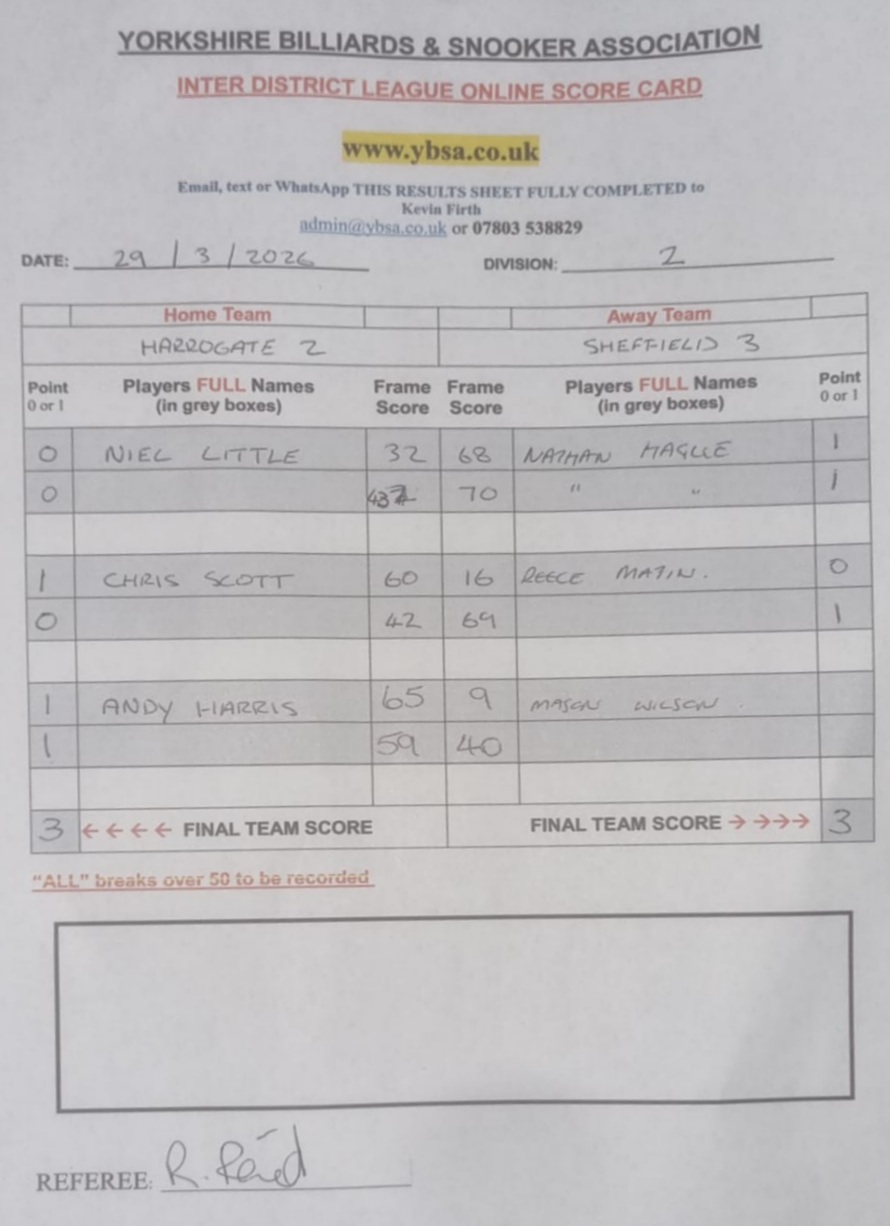 YORKSHIRE BILLIARDS & SNOOKER ASSOCIATION
INTER DISTRICT LEAGUE ONLINE SCORE CARD
www.ybsa.co.uk
Email, text or WhatsApp THIS RESULTS SHEET FULLY COMPLETED to
Kevin Firth
admin@ybsa.co.uk or 07803 538829
DATE: 29/3/2026 DIVISION: 2
Home Team Away Team
HARROGATE 2 SHEFFIELD 3
Point 0 or 1 Players FULL Names (in grey boxes) Frame Score Frame Score Players FULL Names (in grey boxes) Point 0 or 1
0 NIEL LITTLE 32 68 NATHAN HAGUE 1
0 70 " " 1
1 CHRIS SCOTT 60 16 REECE 0
0 42 69 1
1 ANDY HARRIS 65 9 MASON WILSON.
1 59 40
3 ←←←← FINAL TEAM SCORE FINAL TEAM SCORE →→→→ 3
"ALL" breaks over 50 to be recorded
REFEREE: R. Reid